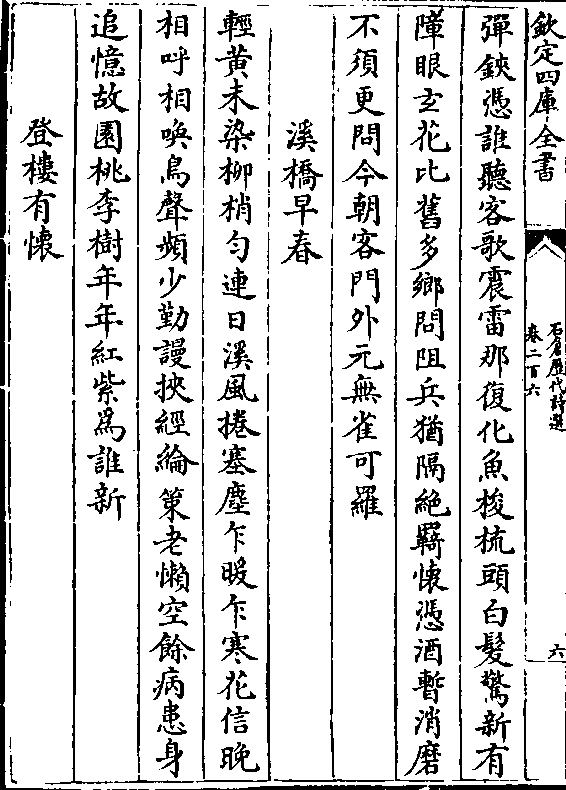 欽定四庫全書
石倉歷代詩選
卷二百六
六
彈鋏憑誰聽客歌震雷那復化魚梭梳頭白髮驚新有
障眼玄花比舊多鄉問阻兵猶隔絶羇懷憑酒暫消磨
不須更問今朝客門外元無雀可羅
溪橋早春
輕黄未染柳梢勻連日溪風捲塞塵乍暖乍寒花信晩
相呼相喚鳥聲頻少勤謾挾經綸策老懶空餘病患身
追憶故園桃李樹年年紅紫爲誰新
登樓有懷